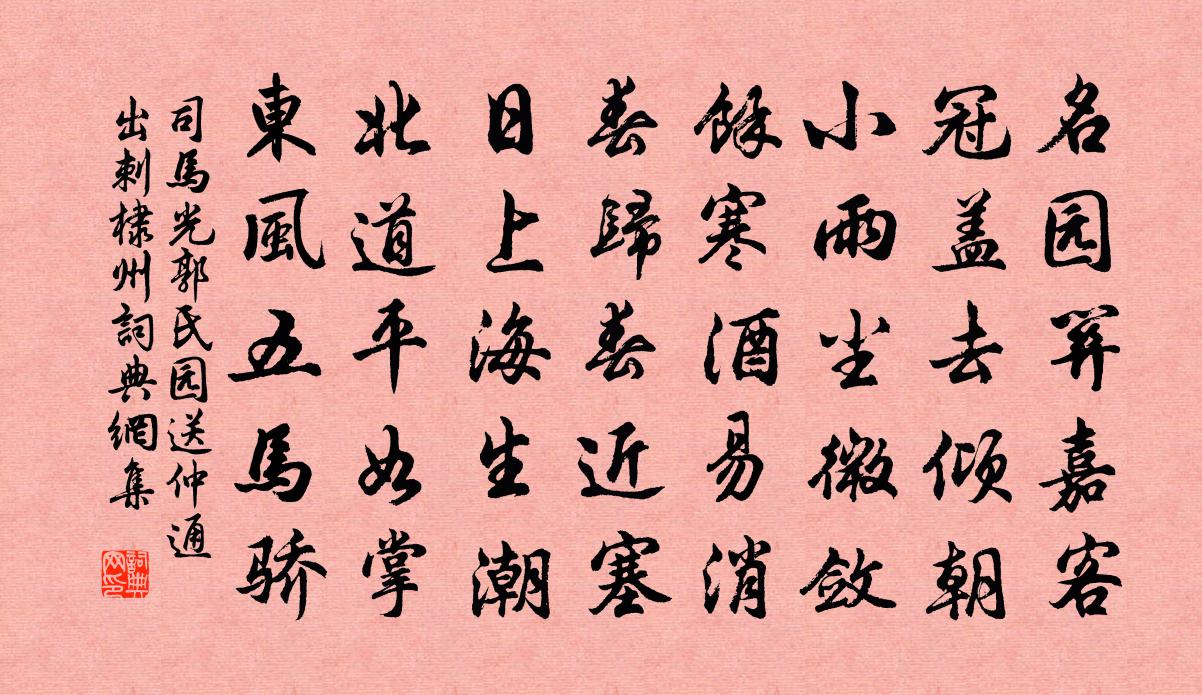 名园笄嘉客
冠盖去倾朝
小雨尘微敛
餘寒酒易消
春歸春近塞
日上海生潮
北道平如掌
東風五馬骄
司馬光郭氏园送仲通
出刺棣州詞典網集
詞典网印